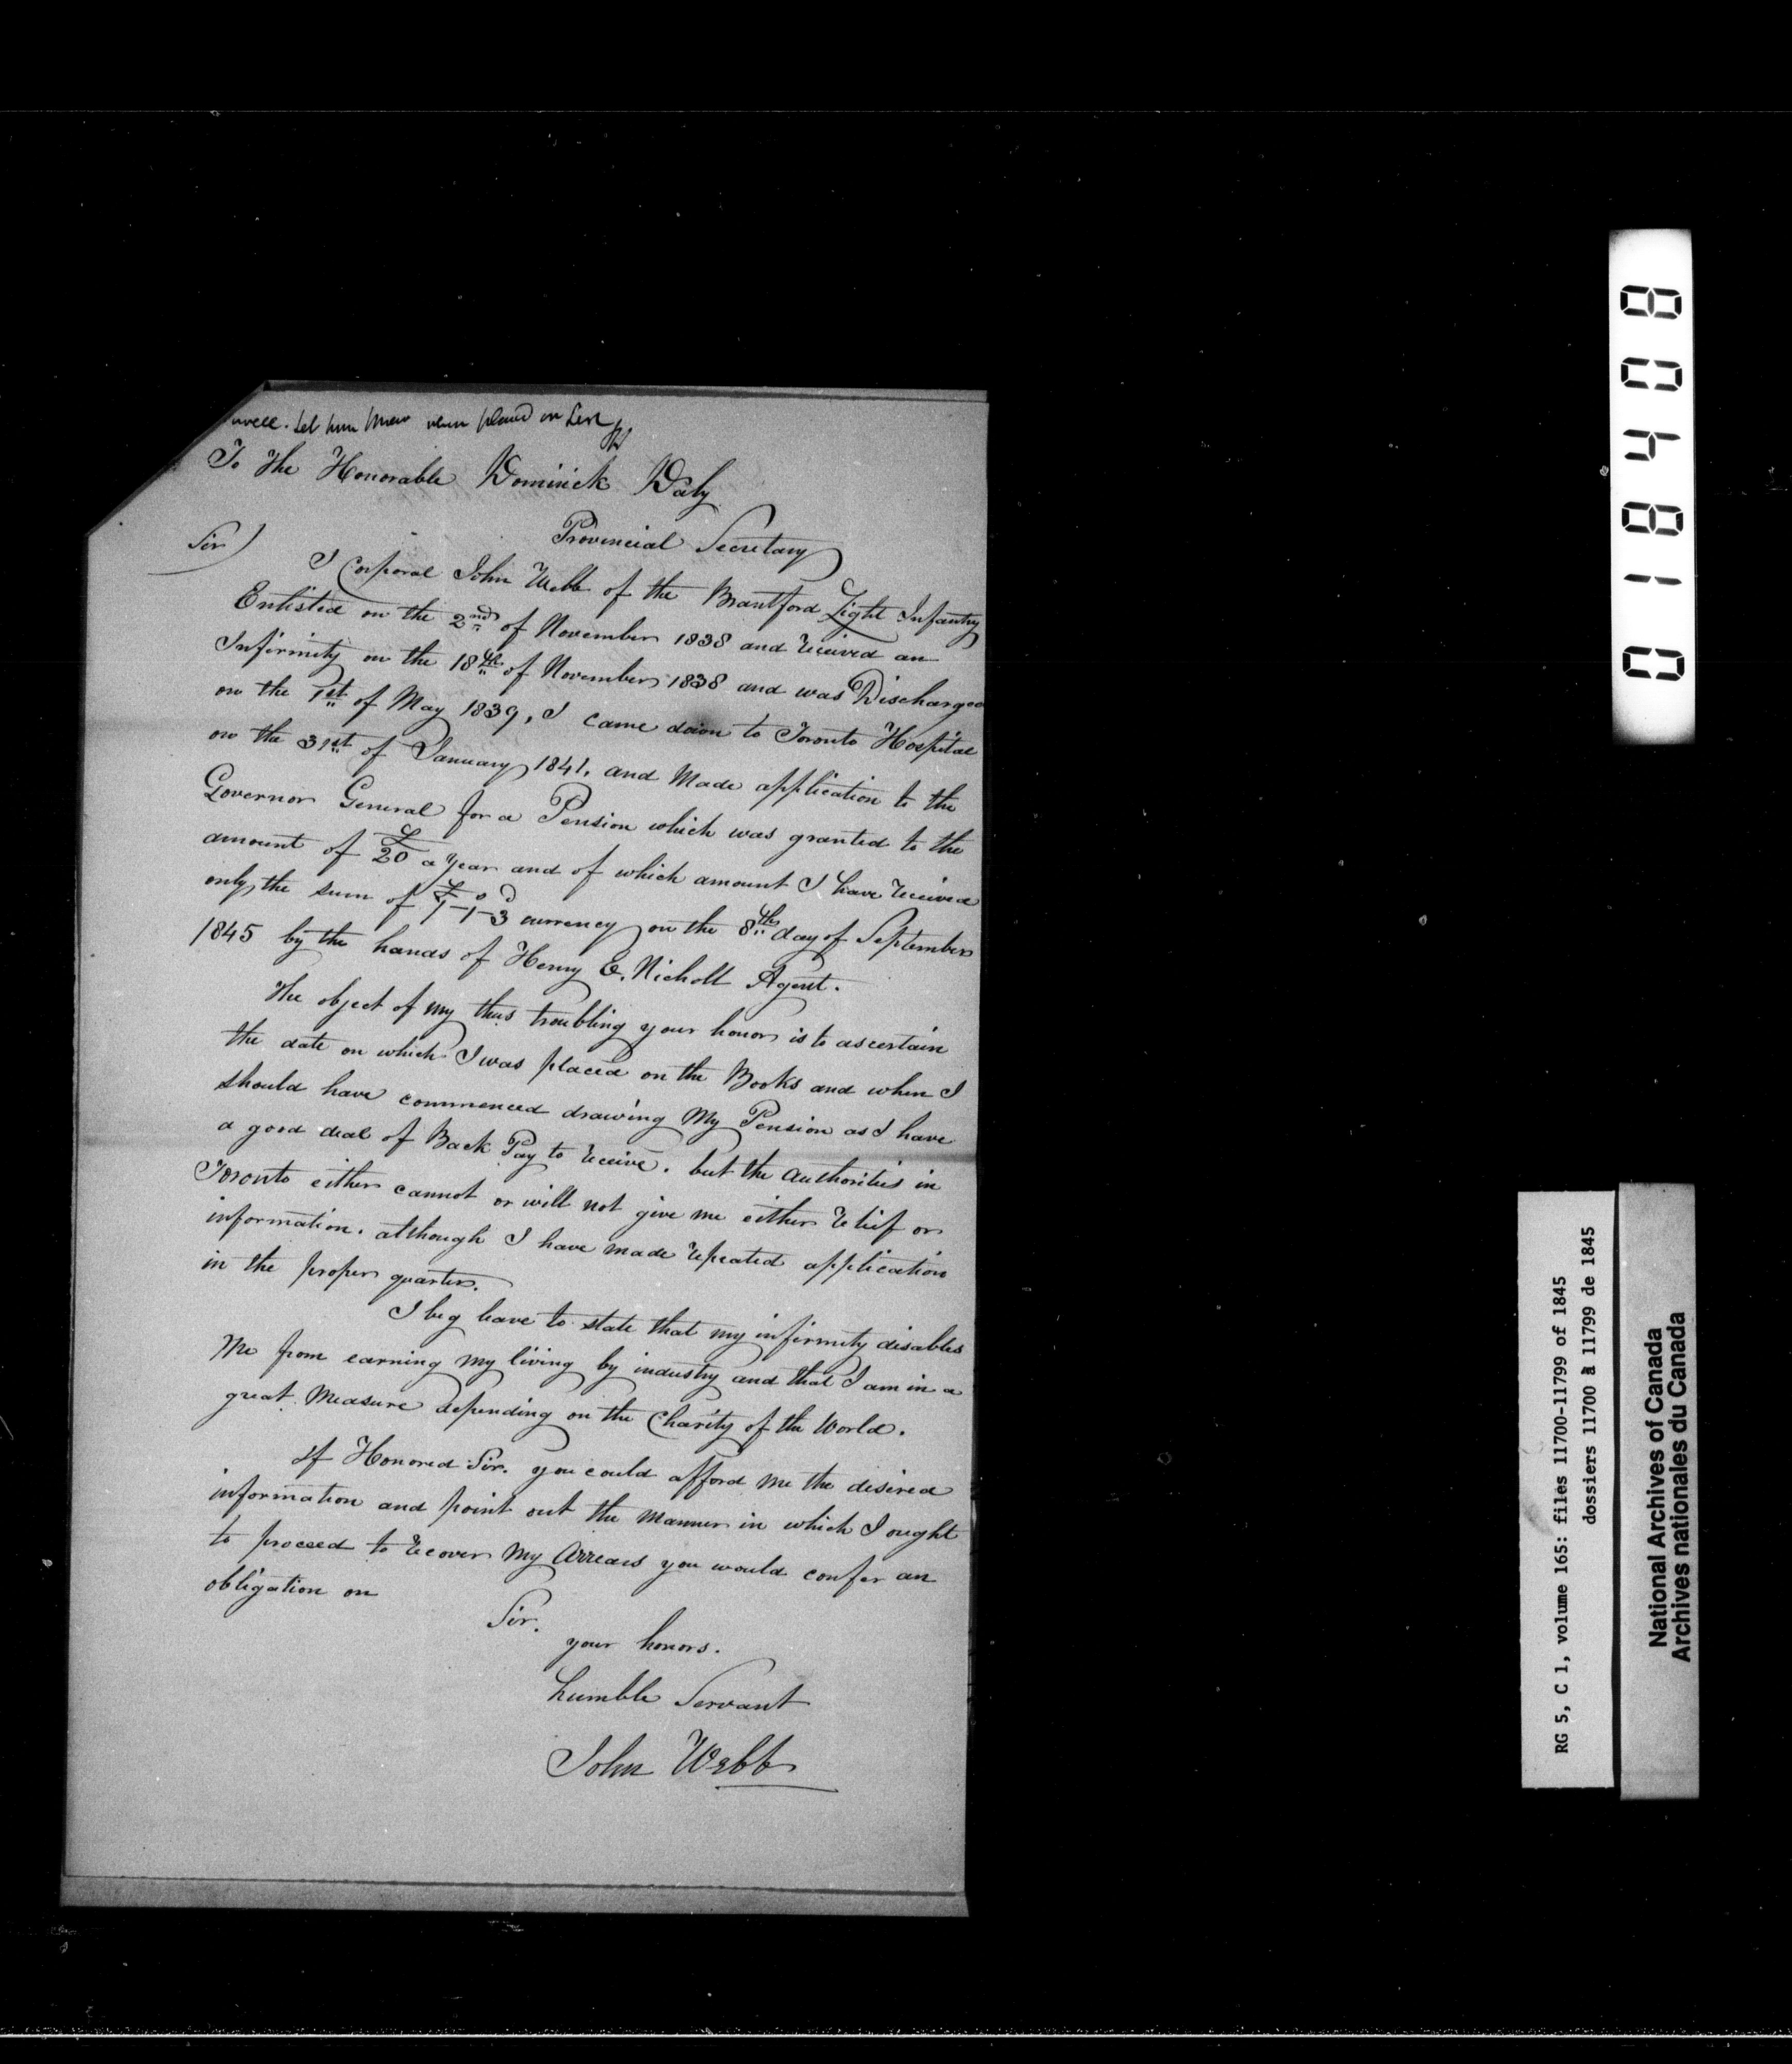 Let him know when placed on List
To The Honorable Dominick Daly
Provincial Secretary
Sir)
I Corporal John Webb of the Brantford Light Infantry
Enlisted on the 2nd of November 1838 and received an
Infirmity on the 18th of November 1838 and was Discharged
on the 1st of May 1839, I came down to Toronto Hospital
on the 31st of January 1841. and Made application to the
Governor General for a Pension which was granted to the
amount of £20 a year and of which amount I have received
only the sum of currency on the 8th day of September
1845 by the hands of Henry E. Nicholl Agent.
The object of my thus troubling your honor is to ascertain
the date on which I was placed on the Books and when I
should have commenced drawing My Pension as I have
a good deal of Back Pay to receive. but the authorities in
Toronto either cannot or will not give me either relief or
information. although I have made repeated application
in the proper quarter.
I beg leave to state that my infirmity disables
Me from earning my living by industry and that I am in a
great Measure depending on the Charity of the World.
If Honored Sir. you could afford me the desired
information and point out the Manner in which I ought
to proceed to recover My Arrears you would confer an
obligation on
Sir.
your honors.
humble Servant
John Webb
018408
RG 5, C 1, volume 165: files 11700-11799 of 1845
dossiers 11700 à 11799 de 1845
National Archives of Canada
Archives nationales du Canada